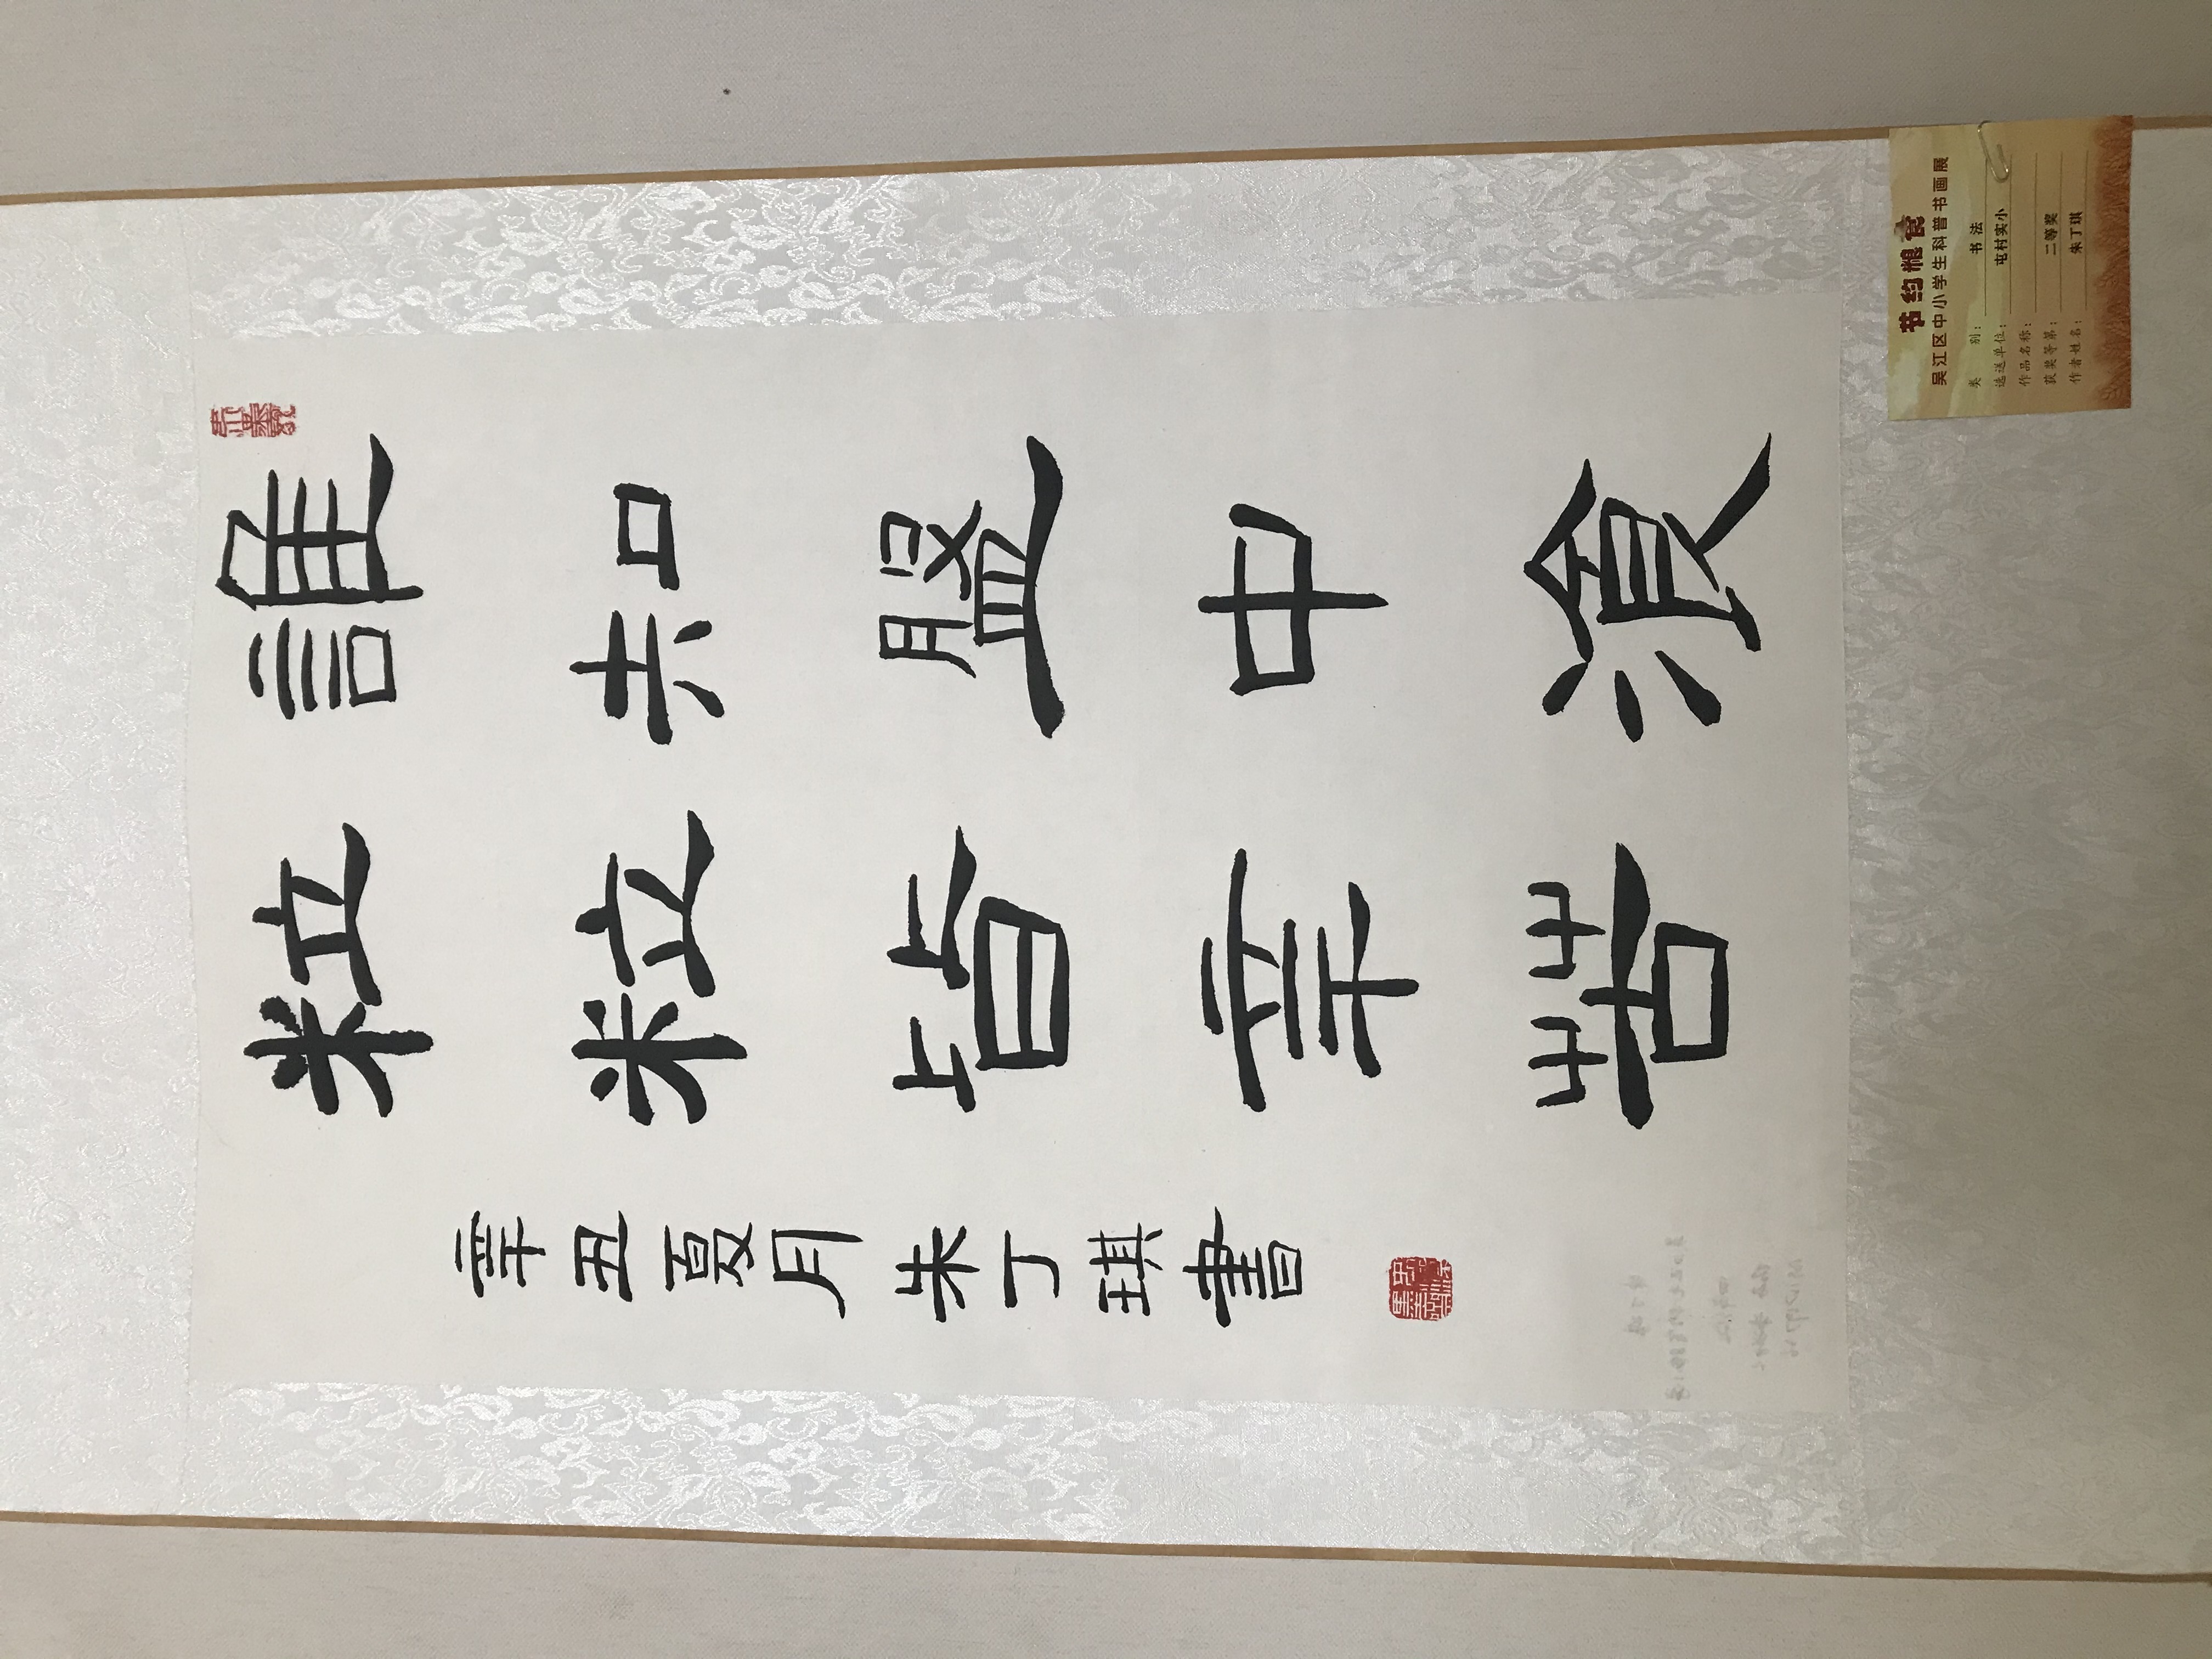 誰知盤中飱
粒粒皆辛苦
辛丑夏月朱丁琪書
节约粮食
吴江区中小学生科普书画展
类 别：书法
选送单位：屯村实小
作品名称：
获奖等第：二等奖
作者姓名：朱丁琪